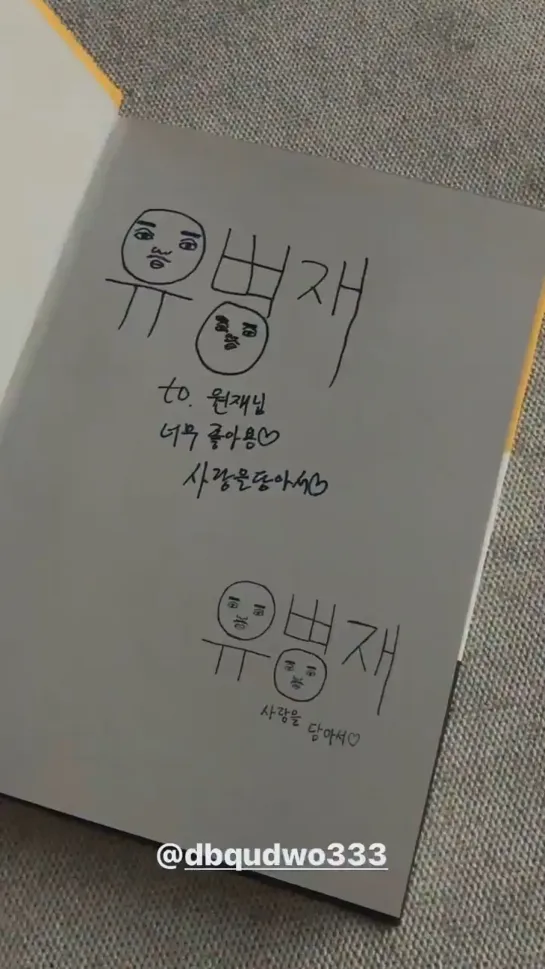 유병재
to. 원재님
너무 좋아용♡
사랑을담아서♡
유병재
사랑을
담아서♡
@dbqudwo333